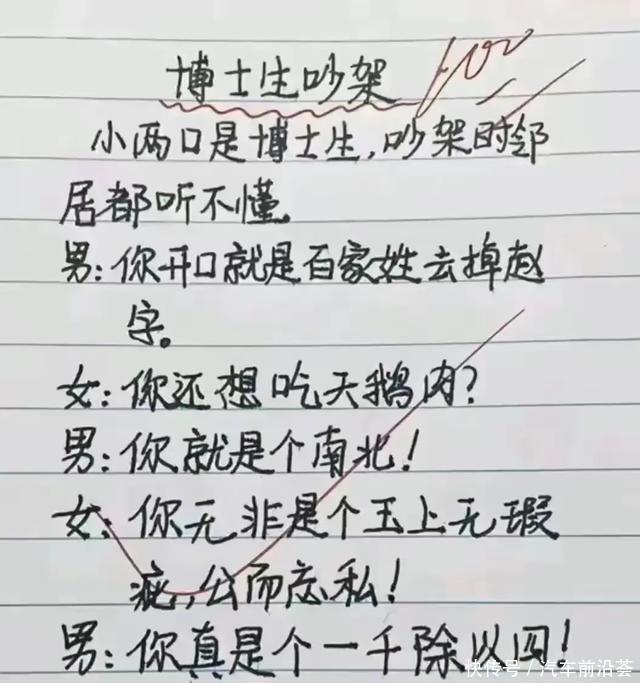 博士生吵架
100
小两口是博士生,吵架时邻
居都听不懂。
男:你开口就是百家姓去掉赵
字。
女:你还想吃天鹅肉?
男:你就是个南北!
女:你无非是个玉上无瑕
疵,公而忘私!
男:你真是个一千除以四!
快传号/汽车前沿荟